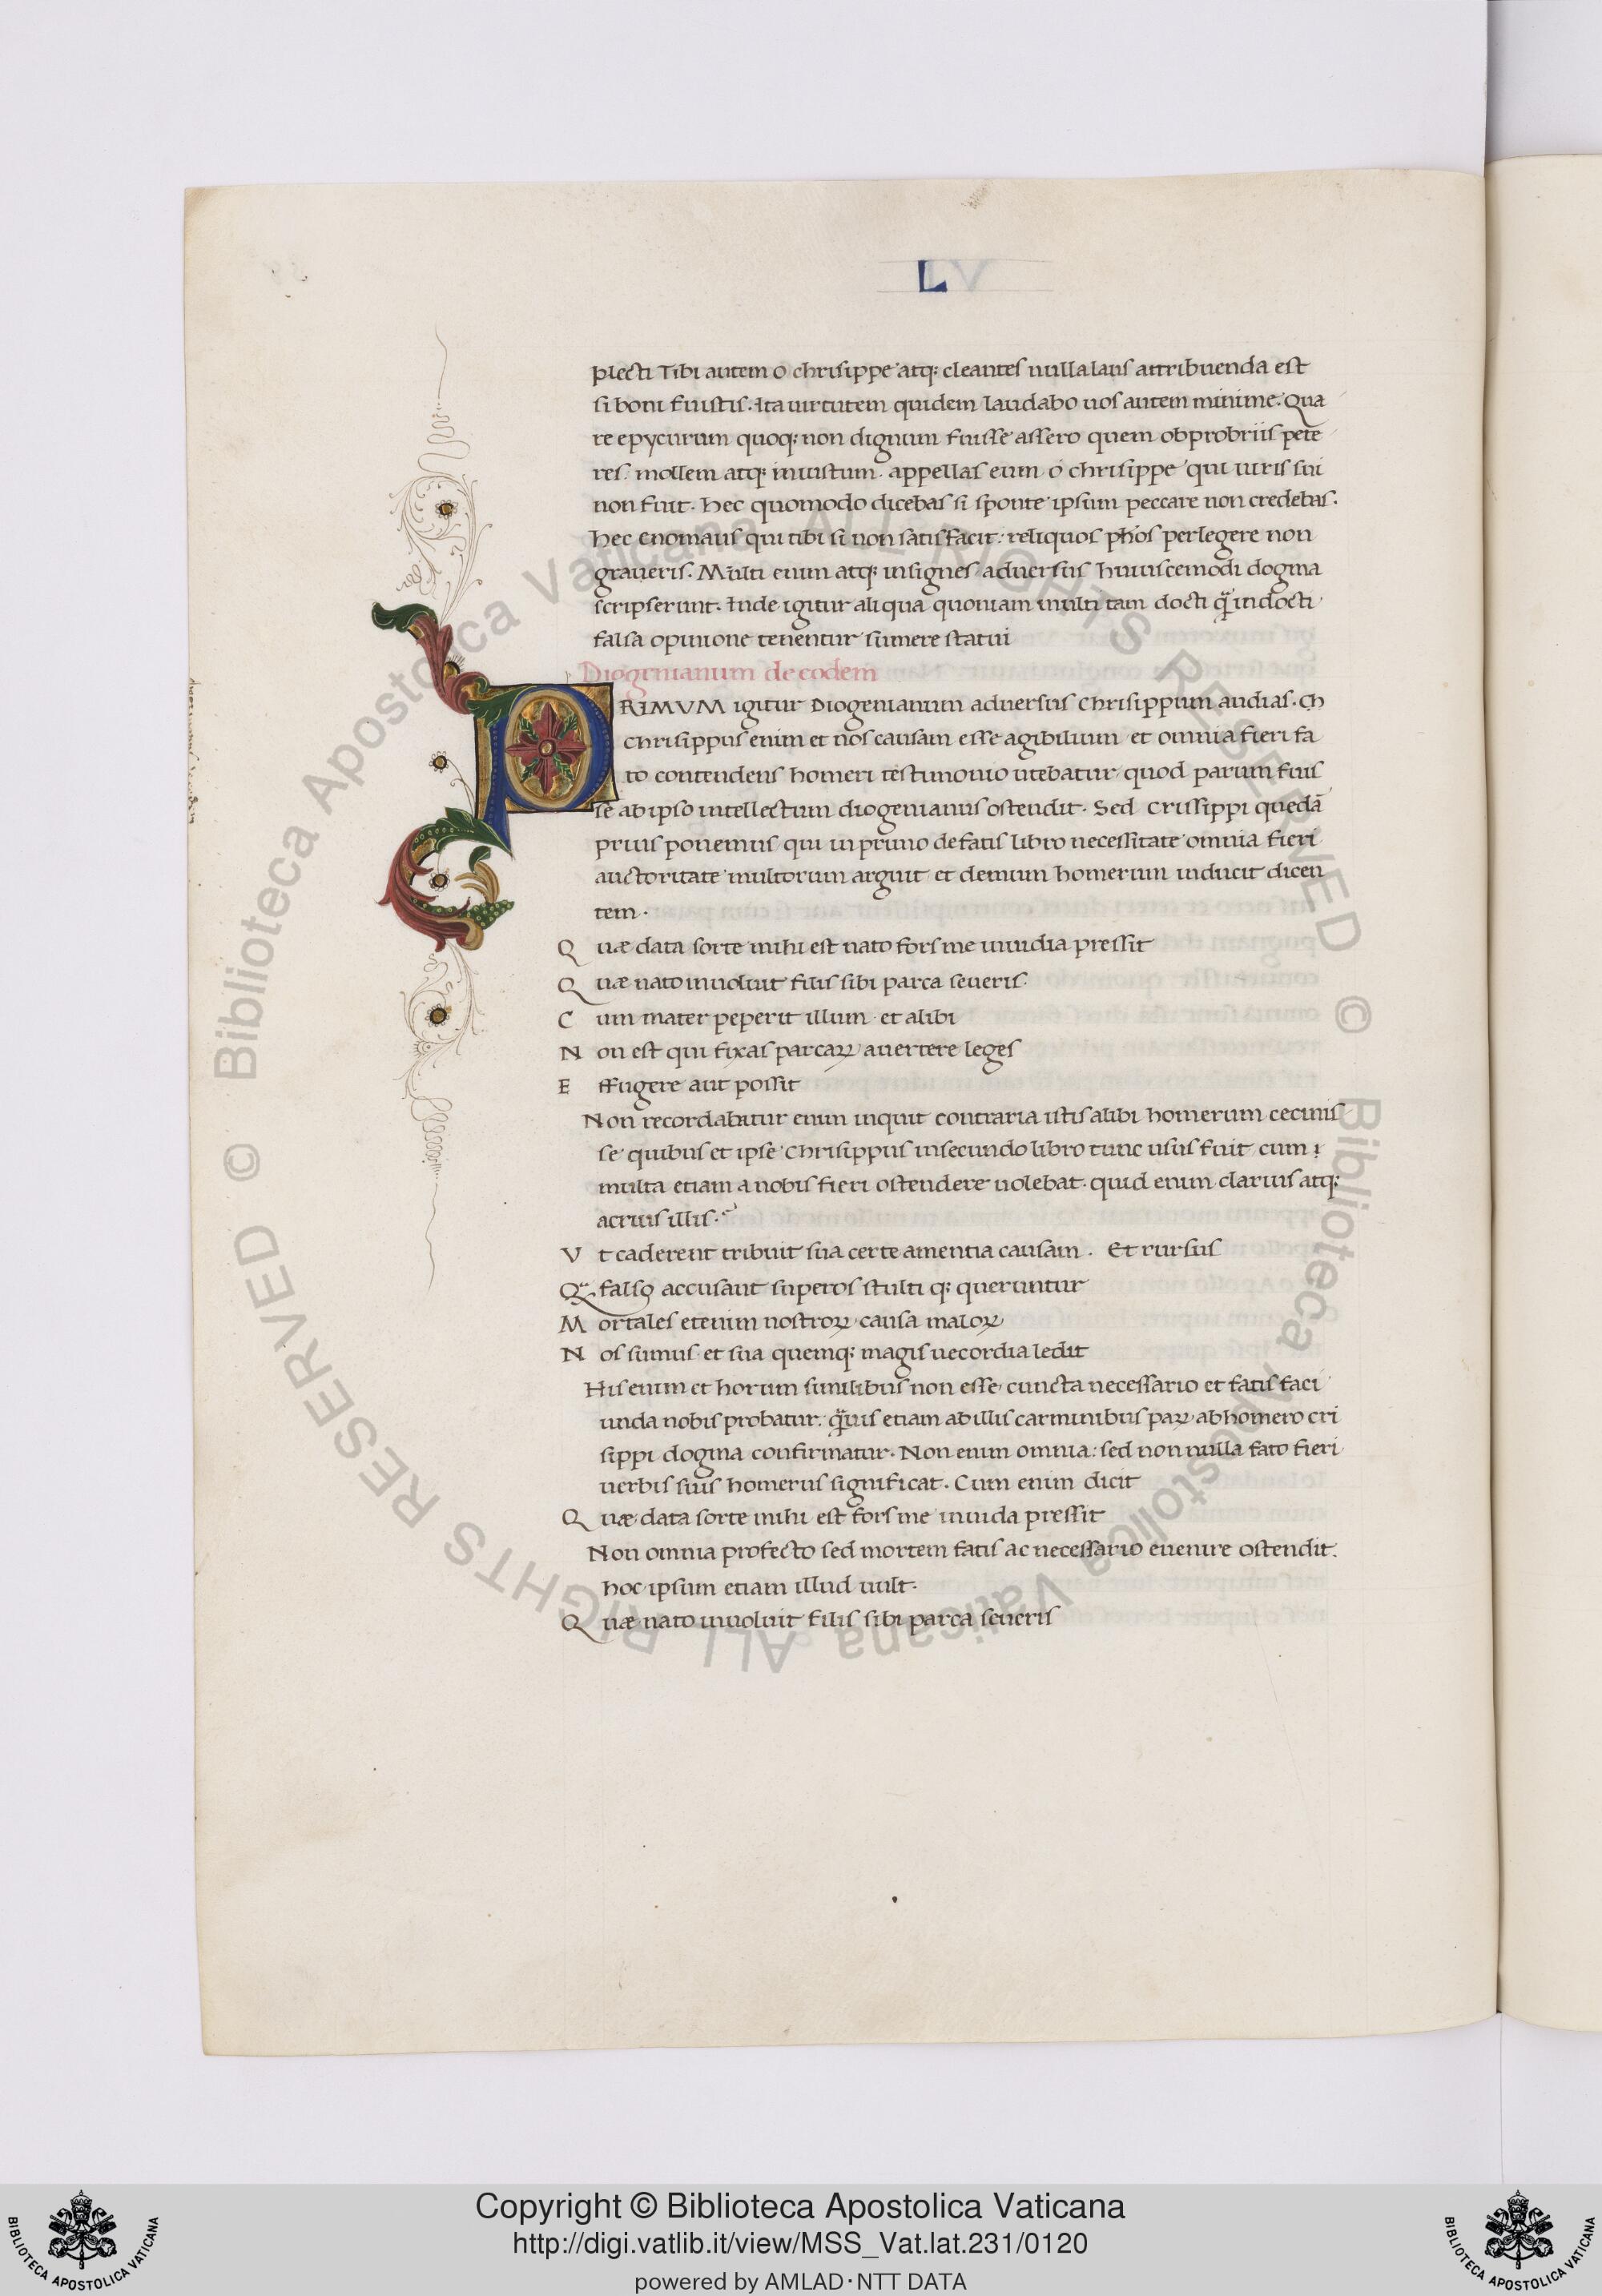 L
plecti Tibi autem o chrisippe atq; cleantes nulla laus attribuenda est
si boni fuistis. Ita uirtutem quidem laudabo uos autem minime. Qua
re epycurum quoq; non dignum fuisse assero quem obprobriis pete
res. mollem atq; iniustum. appellas eum o chrisippe qui iuris sui
non fuit. Hec quomodo dicebas si sponte ipsum peccare non credebas.
Hec Enomaus qui tibi si non satisfacit: reliquos phos perlegere non
graueris. Multi enim atq; insignes aduersus huiuscemodi dogma
scripserunt. Inde igitur aliqua quoniam multi tam docti q̃ indocti
falsa opinione tenentur sumere statui
Diogenianum de eodem
PRIMVM igitur Diogenianum aduersus Chrisippum audias. Ch
Chrisippus enim et nos causam esse agibilium et omnia fieri fa
to contendens homeri testimonio utebatur quod parum fuis
se ab ipso intellectum diogenianus ostendit. Sed Crussippi quedã
prius ponemus qui in primo de fatis libro necessitate omnia fieri
auctoritate multorum arguit et demum homerum inducit dicen
tem.
Quæ data sorte mihi est nato fors me inuidia pressit
Quæ nato inuoluit filis sibi parca seueris.
Cum mater peperit illum. et alibi
Non est qui fixas parcaꝝ auertere leges
Effugere aut possit
Non recordabatur enim inquit contraria istis alibi homerum cecinis
se quibus et ipse Chrisippus in secundo libro tunc usus fuit cum
multa etiam a nobis fieri ostendere uolebat. quid enim clarius atq;
acrius illis.
Vt caderent tribuit sua certe amentia causam. Et rursus
falso accusant superos stulti q; queruntur
Mortales etenim nostroꝝ causa maloꝝ
Nos sumus et sua quemq; magis uecordia ledit
His enim et horum similibus non esse cuncta necessario et fatis faci
unda nobis probatur. q̃uis etiam ab illis carminibus paꝝ ab homero cri
sippi dogma confirmatur. Non enim omnia: sed non nulla fato fieri
uerbis suis homerus significat. Cum enim dicit
Quæ data sorte mihi est fors me inuida pressit
Non omnia profecto sed mortem fatis ac necessario euenire ostendit.
hoc ipsum etiam illud uult.
Quæ nato inuoluit filis sibi parca seueris
© Biblioteca Apostolica Vaticana ALL RIGHTS RESERVED
© Biblioteca Apostolica Vaticana ALL RIGHTS RESERVED
Copyright © Biblioteca Apostolica Vaticana
http://digi.vatlib.it/view/MSS_Vat.lat.231/0120
powered by AMLAD·NTT DATA
BIBLIOTECA APOSTOLICA VATICANA
BIBLIOTECA APOSTOLICA VATICANA